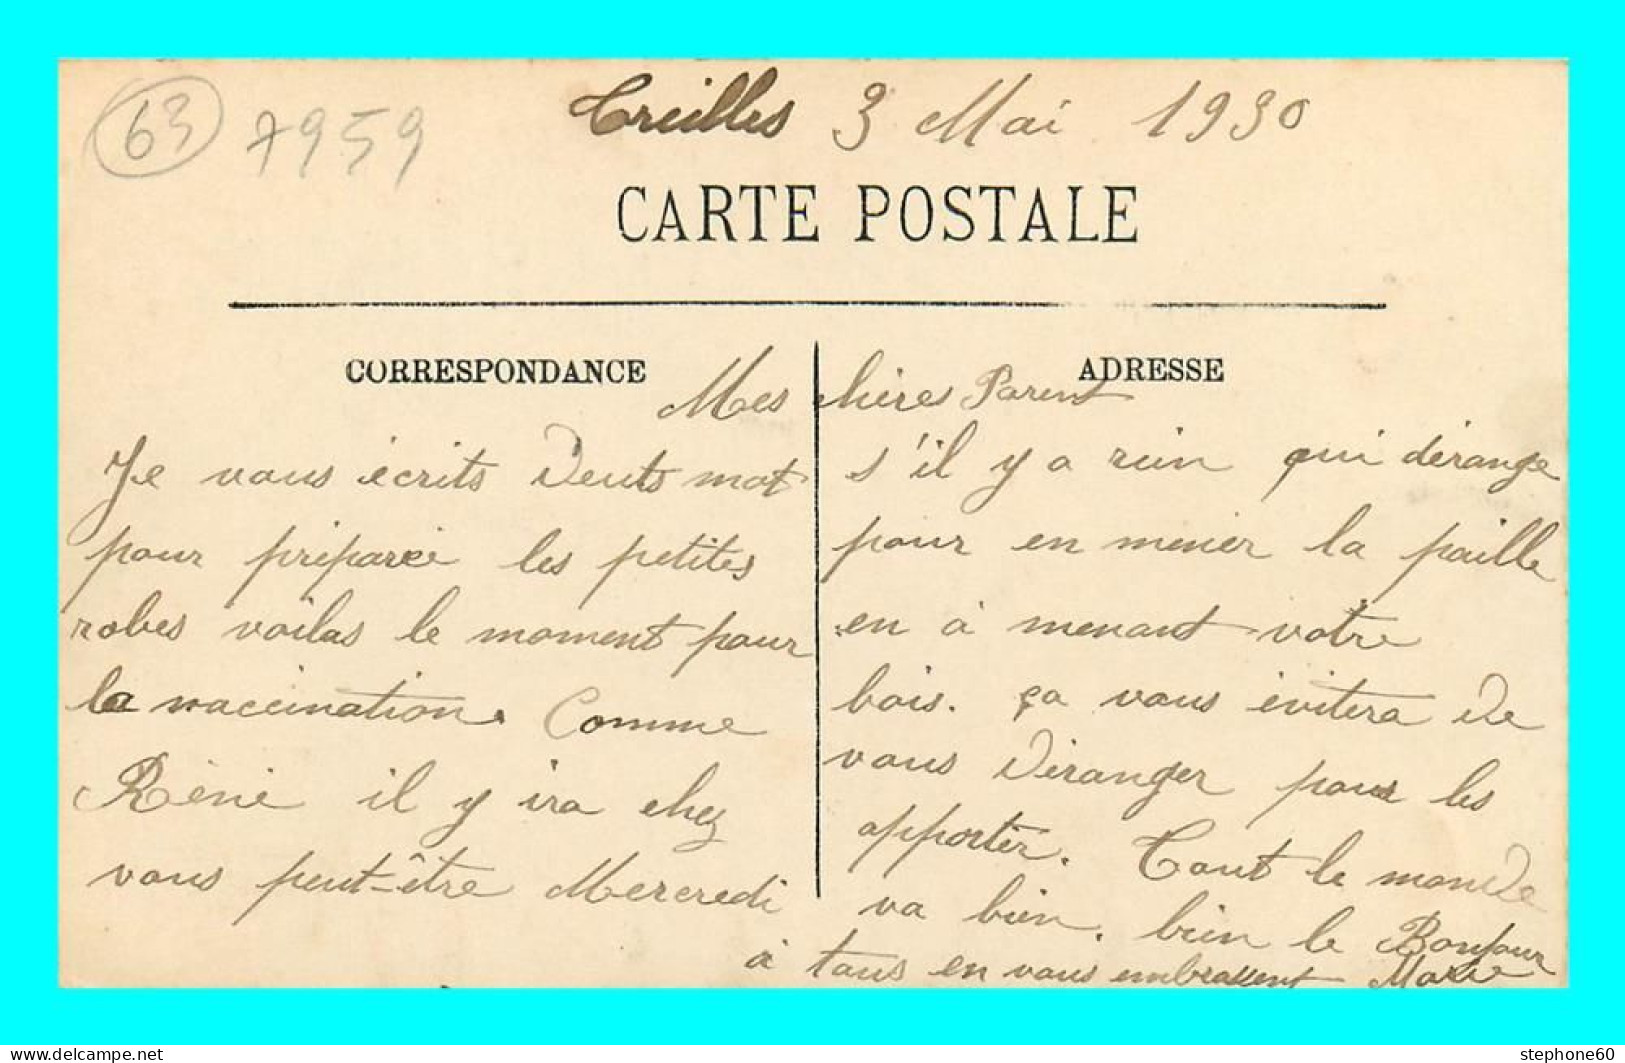 63 7959
Treilles 3 Mai 1930
CARTE POSTALE
CORRESPONDANCE
ADRESSE
Mes chères Parent
Je vous écrits deuts mot
pour préparée les petites
robes voilas le moment pour
la vaccination. Comme
Réné il y ira chez
vous peut-être Mercredi
s'il y a rien qui dérange
pour en mener la paille
en à menant votre
bois. ça vous évitera de
vous déranger pour les
apporter. Tout le monde
va bien. bien le Bonjour
à tous en vous embrassent Marie
delcampe.net
stephone60